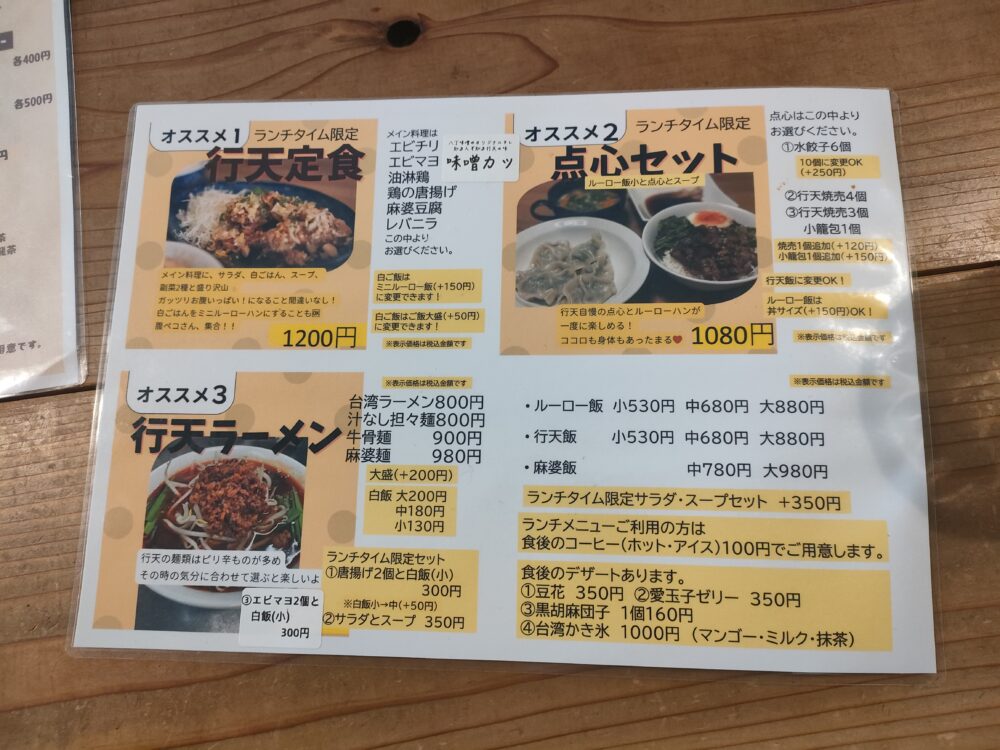 各400円
各500円
円
茶
龍茶
用意です。
オススメ1
ランチタイム限定
行天定食
メイン料理に、サラダ、白ごはん、スープ、
副菜2種と盛り沢山
ガッツリお腹いっぱい!になること間違いなし!
白ごはんをミニルーローハンにすることも🆗
腹ペコさん、集合!!
1200円
メイン料理は
エビチリ
エビマヨ
油淋鶏
鶏の唐揚げ
麻婆豆腐
レバニラ
この中より
お選びください。
味噌カツ
白ご飯は
ミニルーロー飯(+150円)
に変更できます!
白ご飯はご飯大盛(+50円)
に変更できます!
※表示価格は税込金額です
オススメ2
ランチタイム限定
点心セット
ルーロー飯小と点心とスープ
行天自慢の点心とルーローハンが
一度に楽しめる!
ココロも身体もあったまる♥
1080円
点心はこの中より
お選びください。
①水餃子6個
10個に変更OK
(+250円)
②行天焼売4個
③行天焼売3個
小籠包1個
焼売1個追加(+120円)
小籠包1個追加(+150円)
行天飯に変更OK!
ルーロー飯は
丼サイズ(+150円)OK!
※表示価格は税込金額です
オススメ3
行天ラーメン
行天の麺類はピリ辛ものが多め
その時の気分に合わせて選ぶと楽しいよ
※表示価格は税込金額です
台湾ラーメン800円
汁なし担々麺800円
牛骨麺 900円
麻婆麺 980円
大盛(+200円)
白飯 大200円
中180円
小130円
ランチタイム限定セット
①唐揚げ2個と白飯(小)
300円
※白飯小→中(+50円)
②サラダとスープ 350円
③エビマヨ2個と
白飯(小)
300円
※表示価格は税込金額です
・ルーロー飯 小530円 中680円 大880円
・行天飯 小530円 中680円 大880円
・麻婆飯 中780円 大980円
ランチタイム限定サラダ・スープセット +350円
ランチメニューご利用の方は
食後のコーヒー(ホット・アイス)100円でご用意します。
食後のデザートあります。
①豆花 350円 ②愛玉子ゼリー 350円
③黒胡麻団子 1個160円
④台湾かき氷 1000円 (マンゴー・ミルク・抹茶)